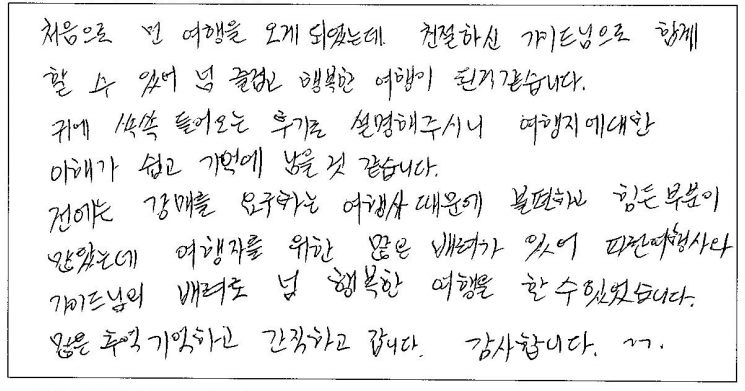 처음으로 먼 여행을 오게 되었는데 친절하신 가이드님으로 함께
할 수 있어 넘 즐겁고 행복한 여행이 된거같습니다.
귀에 쏙쏙 들어오는 후기로 설명해주시니 여행지에대한
이해가 쉽고 기억에 남을 것 같습니다.
전에는 강매를 요구하는 여행사 때문에 불편하고 힘든부분이
많았는데 여행자를 위한 많은 배려가 있어 여행사와
가이드님의 배려로 넘 행복한 여행을 할 수 있었습니다.
많은 추억 기억하고 간직하고 갑니다. 감사합니다. ~~.